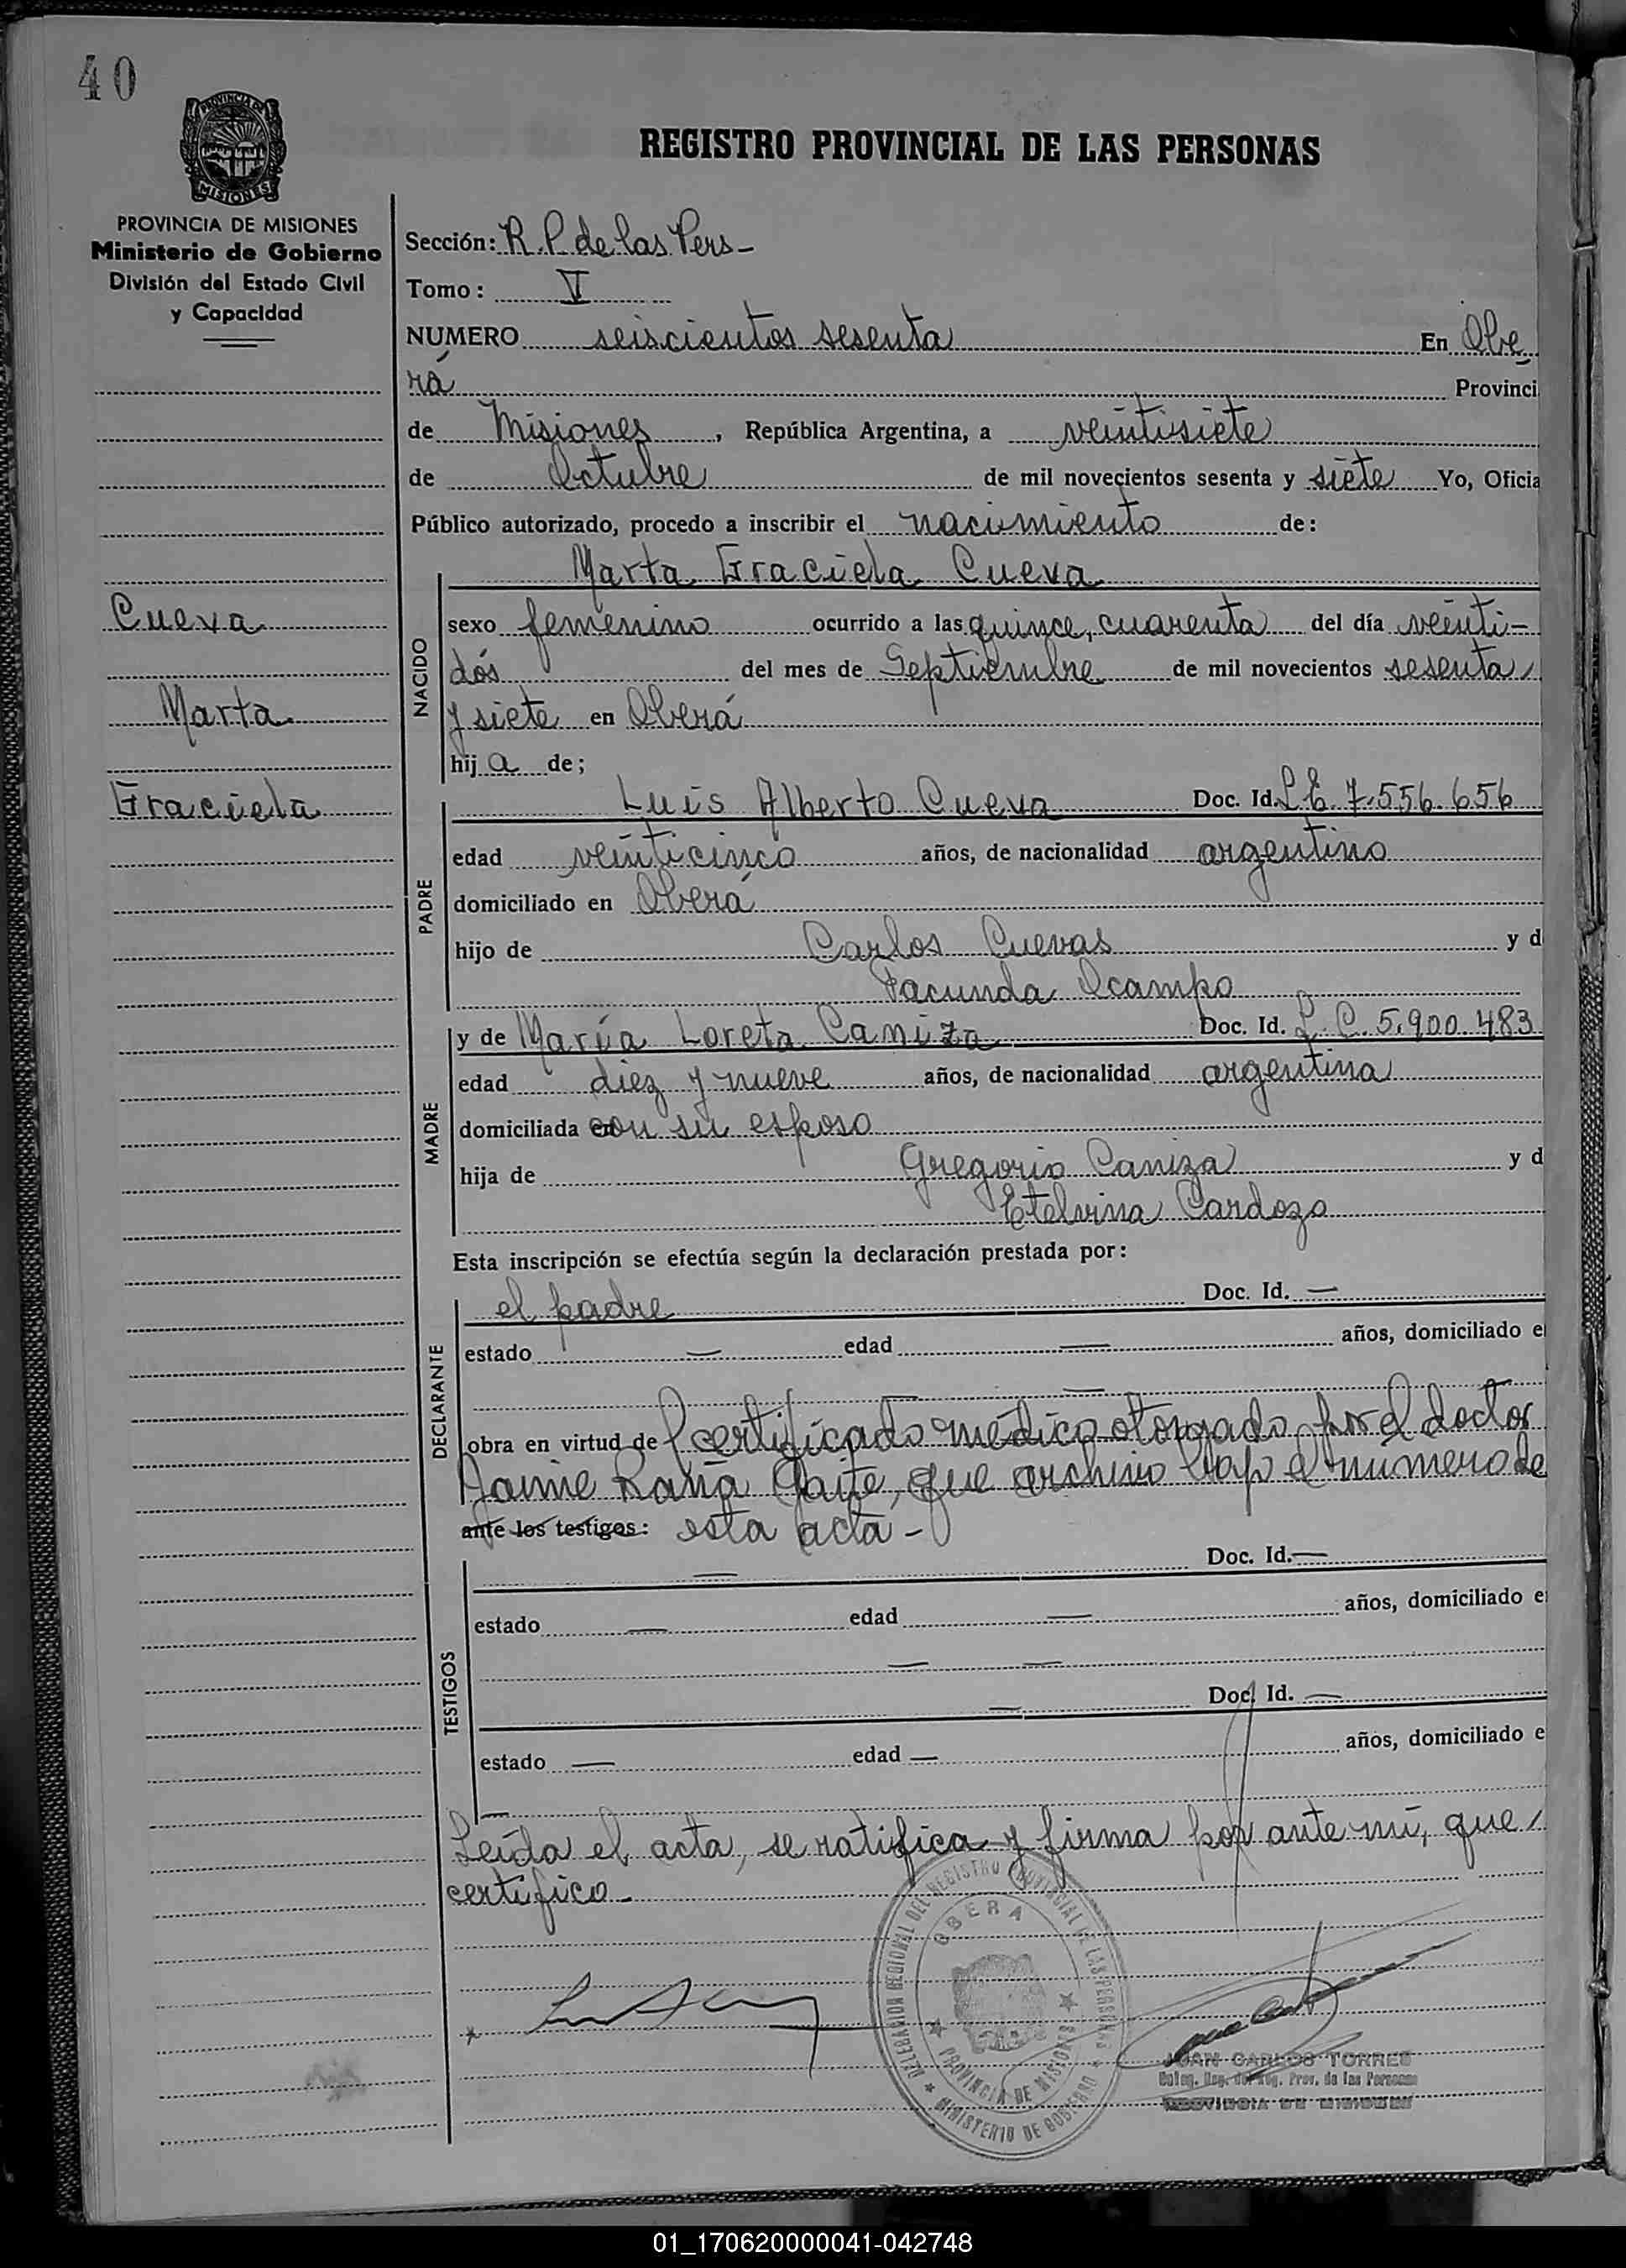 40
PROVINCIA DE
MISIONES
REGISTRO PROVINCIAL DE LAS PERSONAS
PROVINCIA DE MISIONES
Ministerio de Gobierno
División del Estado Civil
y Capacidad
Sección: R.P. de las Pers-
Tomo: V
NUMERO seiscientos sesenta En Obe
rá Provinci
de Misiones, República Argentina, a veintisiete
de Octubre de mil novecientos sesenta y siete Yo, Oficia
Público autorizado, procedo a inscribir el nacimiento de:
Marta Graciela Cueva
Cueva
Marta
Graciela
NACIDO
sexo femenino ocurrido a las quince, cuarenta del día veinti-
dós del mes de Septiembre de mil novecientos sesenta
y siete en Oberá
hija de;
PADRE
Luis Alberto Cueva Doc. Id. L.E. 7.556.656
edad veinticinco años, de nacionalidad argentino
domiciliado en Oberá
hijo de Carlos Cuevas y d
Facunda Ocampo
MADRE
y de María Loreta Caniza Doc. Id. L.C. 5.900.483
edad diez y nueve años, de nacionalidad argentina
domiciliada con su esposo
hija de Gregorio Caniza y d
Etelvina Cardozo
Esta inscripción se efectúa según la declaración prestada por:
DECLARANTE
el padre Doc. Id. —
estado — edad — años, domiciliado e
— —
obra en virtud del certificado médico otorgado por el doctor
Jaime Gaite, que archivo bajo el número de
ante los testigos: esta acta-
TESTIGOS
— Doc. Id. —
estado — edad — años, domiciliado e
— —
— Doc. Id. —
estado — edad — años, domiciliado e
—
Leída el acta, se ratifica y firma por ante mí, que
certifico-
DELEGACION REGIONAL DEL REGISTRO PROVINCIAL DE LAS PERSONAS
OBERA
PROVINCIA DE MISIONES
MINISTERIO DE GOBIERNO
JUAN CARLOS TORRES
Deleg. Reg. del Reg. Prov. de las Personas
PROVINCIA DE MISIONES
01_170620000041-042748